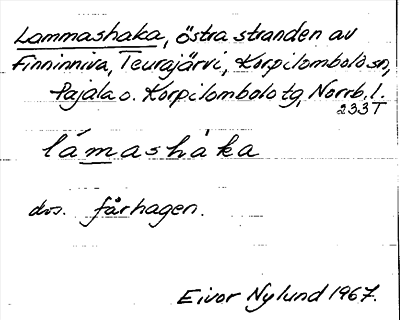 Lammashaka, östra stranden av
Finninniva, Teurajärvi, Korpilombolo sn,
Pajala o. Korpilombolo tg, Norrb. l.
233T
lámasháka
dvs. fårhagen.
Eivor Nylund 1967.